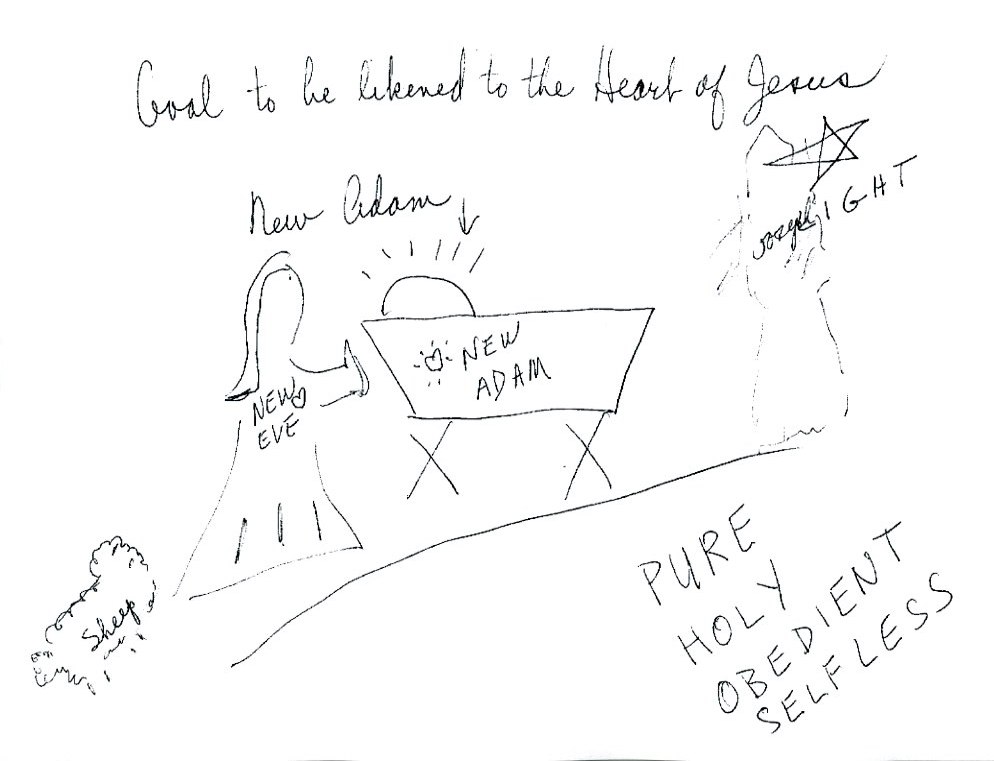 Goal to be likened to the Heart of Jesus
New Adam
LIGHT
Joseph
NEW
ADAM
NEW
EVE
Sheep
PURE
HOLY
OBEDIENT
SELFLESS